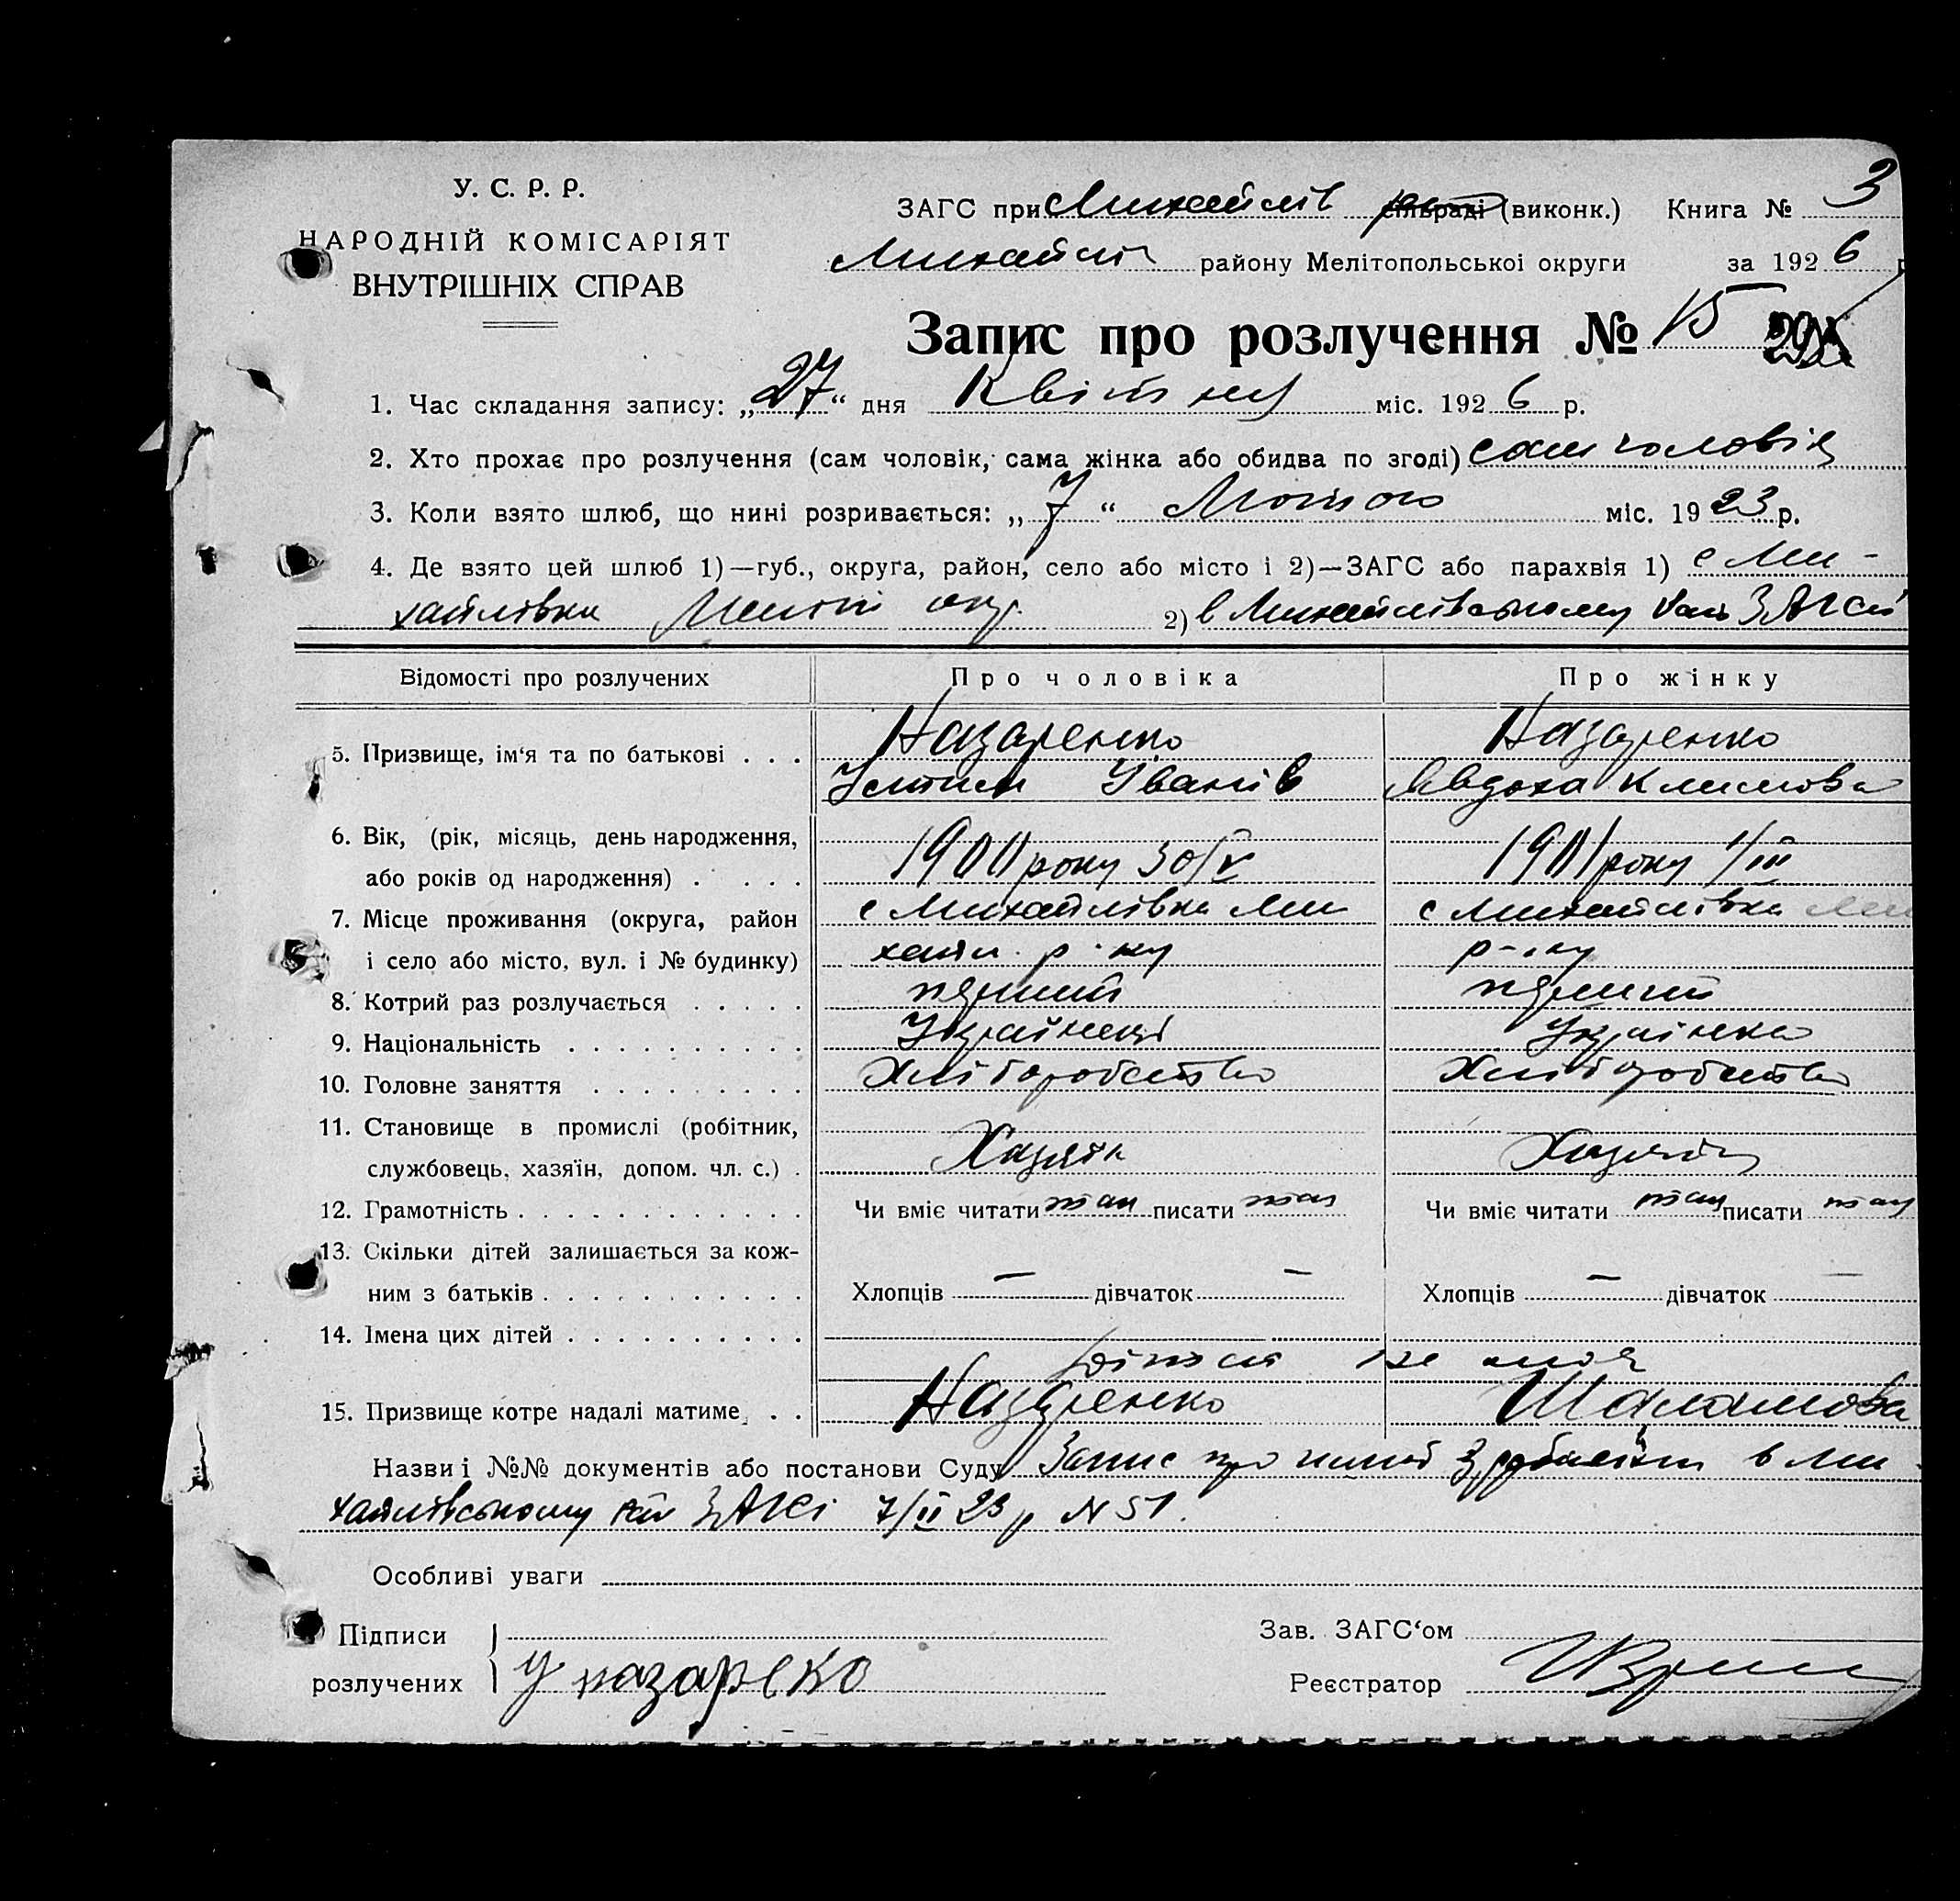 У. С. Р. Р.
НАРОДНІЙ КОМІСАРІЯТ
ВНУТРІШНІХ СПРАВ
ЗАГС при Михайлів сільраді (виконк.) Книга № 3
району Мелітопольської округи за 1926 р
Запис про розлучення № 15
1. Час складання запису: „27“ дня Квітня міс. 1926 р.
2. Хто прохає про розлучення (сам чоловік, сама жінка або обидва по згоді) сам чоловік
3. Коли взято шлюб, що нині розривається: „7“ Лютого міс. 1923 р.
4. Де взято цей шлюб 1)—губ., округа, район, село або місто і 2)—ЗАГС або парахвія 1) с Ми-
хайлівка окр. 2) в Михайлівському ЗАГСі
Відомості про розлучених Про чоловіка Про жінку
5. Призвище, ім‘я та по батькові . . . Назаренко Назаренко
Устим Іванів Явдоха Климова
6. Вік, (рік, місяць, день народження,
або років од народження) . . . . 1900 року 30/V 1901 року 1/III
7. Місце проживання (округа, район с Михайлівка Ми с Михайлівка Ми
і село або місто, вул. і № будинку) хайл. р-ну р-ну
8. Котрий раз розлучається . . . . . перший перший
9. Національність . . . . . . . . . . Українець Українка
10. Головне заняття . . . . . . . . . Хліборобство Хліборобство
11. Становище в промислі (робітник,
службовець, хазяїн, допом. чл. с.) . Хазяїн
12. Грамотність . . . . . . . . . . . . Чи вміє читати так писати так Чи вміє читати так писати так
13. Скільки дітей залишається за кож-
ним з батьків . . . . . . . . . . . Хлопців — дівчаток — Хлопців — дівчаток —
14. Імена цих дітей . . . . . . . . . .
дітей не має
15. Призвище котре надалі матиме . . Назаренко Шаламова
Назви і №№ документів або постанови Суду Запис про шлюб в Ми-
хайлівському ЗАГСі 7/II 23 р N 51.
Особливі уваги
Підписи Зав. ЗАГС‘ом
розлучених У назарeко Реєстратор